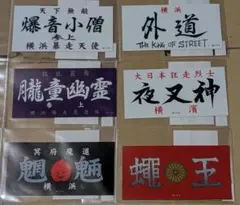 天下無敵
爆音小僧
参上
横浜暴走天使
横浜
外道
THE KING OF STREET.
朧童幽霊
参上
大日本狂走烈士
夜叉神
横濱
冥府魔道
魍魎
横浜
蠅王